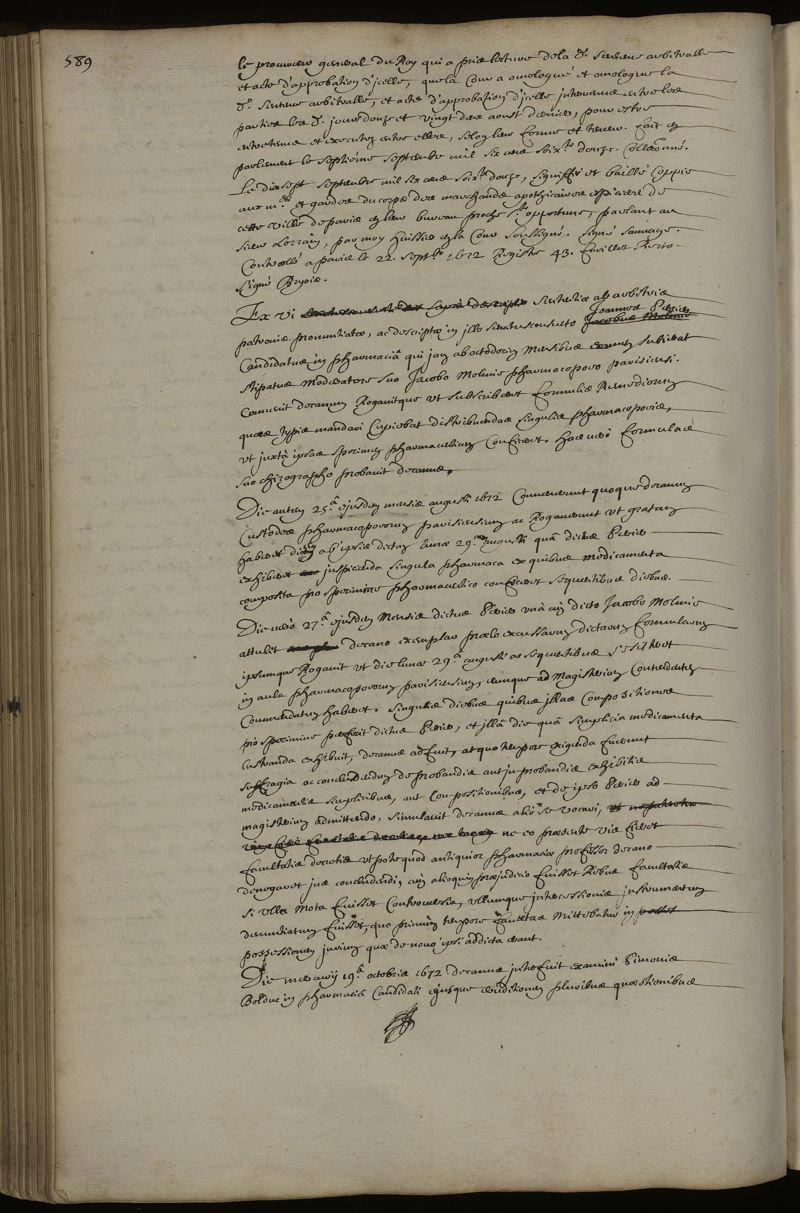 589
le procureur general du Roy qui a prins lecture de la d. sentence arbitralle
et acte d'approbation d'jcelle, que la Cour a omologué et omologue la
d. sentence arbitralle, et acte d'approbation d'jcelle jntervenue entre les
parties les d. jours douze et vingt deux aoust derniers, pour estre
entretenue et executez entre elles, selon leur forme et teneur. fait en
parlement le septiéme septembre mil six cens soix.te douze. Collaonné.
Le dix sept septembre mil six cens soix.te douze, signiffié et baillé coppie
aux m.es et gardes du corps des marchands apothicaires espiciers de
cette ville de paris en leur bureau proche S.te opportune, parlant au
sieur Lorrain, par moy huissier en la Cour soussigné. signé Sauvage.
Controllé a paris le 22. sept.bre 1672 Registre 43. feuillet
signé
Ex vi sententiæ ab arbitris
patronis pronuntiatæ, ac descriptæ in jllo senatusconsulto Joannes Pieres
Candidatus in pharmaciâ qui jam ab octodecim mensibus examen subierat
stipatus moderatore suo Jacobo Molinis pharmacopoeo parisiensi.
Convenit decanum Rogavitque ut subscriberet formulis Remediorum
quas typis mandari cupiebat distribuendas singulis pharmacopoeis,
ut juxtà ipsas specimen pharmaceuticum conficeret. has verò formulas
suo chirographo probavit decanus.
Die autem 25.â ejusdem mensis augusti 1672 Convenerunt quoque decanum
Custodes pharmacopoeorum parisiensium ac Rogaverunt ut gratam
haberet diem ab ipsis dictam lunæ 29.â augusti quâ dictus Pieres
exhiberet jnspicienda singula pharmaca ex quibus medicamenta
composita pro specimine pharmaceutico conficeret sequentibus diebus.
Die verò 27.â ejusdem mensis dictus Pieres unà cum dicto Jacobo Molinis
attulit decano exemplar prælo excussarum dictarum formularum
ipsumque Rogavit ut die lunæ 29.â augusti ac sequentibus
in aula pharmacopoeorum parisiensium, eumque ad magisterium contendentem
commendatum haberet. singulis diebus quibus jllas compositiones
pro specimine perfecit dictus Pieres, et jllâ die quâ simplicia medicamenta
lustranda exhibuit, decanus adfuit, at quo tempore exigenda fuerunt
suffragia ac concludendum de probandis aut jmprobandis exhibitis
medicamentis simplicibus, aut compositionibus, et de ipso Pieres ad
magisterium admittendo, simulavit decanus aliò se vocari,
ne eo præsente vis fieret
facultatis decretis utpote quod antiquior pharmaciæ professor decano
denegaret jus concludendi, cum alioquin præjudicio fuisset Rebus facultatis
si ulla mota fuisset controversia, ullumque jntercessionis jnstrumentum
denuntiatum fuisset, quo primum tempore facultas mittebatur in
possessionem jurium quæ de novo ipsi addicta erant.
Die mercurij 19.â octobris 1672 decanus jnterfuit examini Simonis
Bolduc in pharmaciâ Candidati ejusque eruditionem pluribus quæstionibus